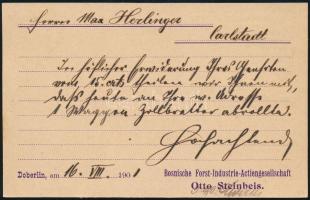 Herrn Max Herlinger
Carlstadt
In höflicher Erwiderung Ihres Geehrten
vom 15. cts theilen wir Ihnen mit,
daß heute an Ihre w. Adresse
1 Waggon Zollbretter abrollte.
Hochachtend
Doberlin, am 16. VIII. 1901
Bosnische Forst-Industrie-Actiengesellschaft
Otto Steinbeis.